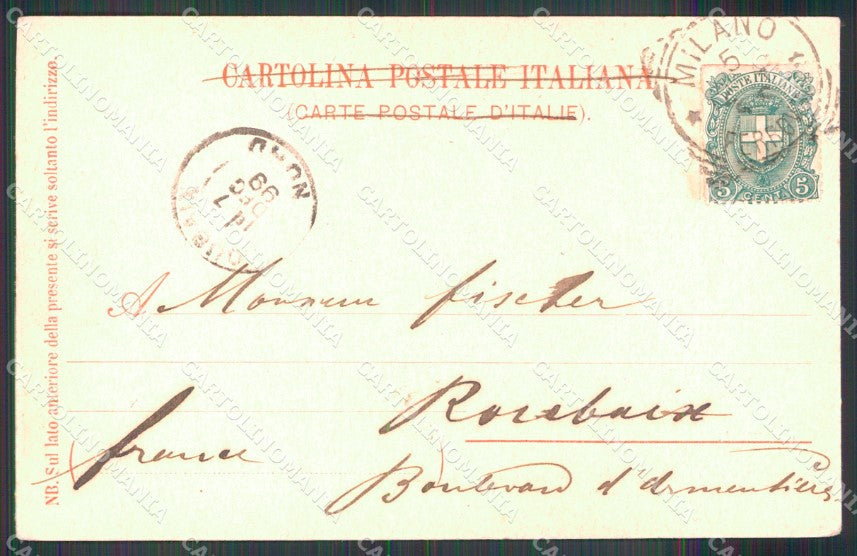 CARTOLINA POSTALE ITALIANA
(CARTE POSTALE D'ITALIE).
MILANO
5
POSTE ITALIANE
5 CENT. 5
NORD
99
DEC
7
NB. Sul lato anteriore della presente si scrive soltanto l'indirizzo.
A Monsieur fischer
Roubaix
france
Boulevard d'Armentières
CARTOLINOMANIA